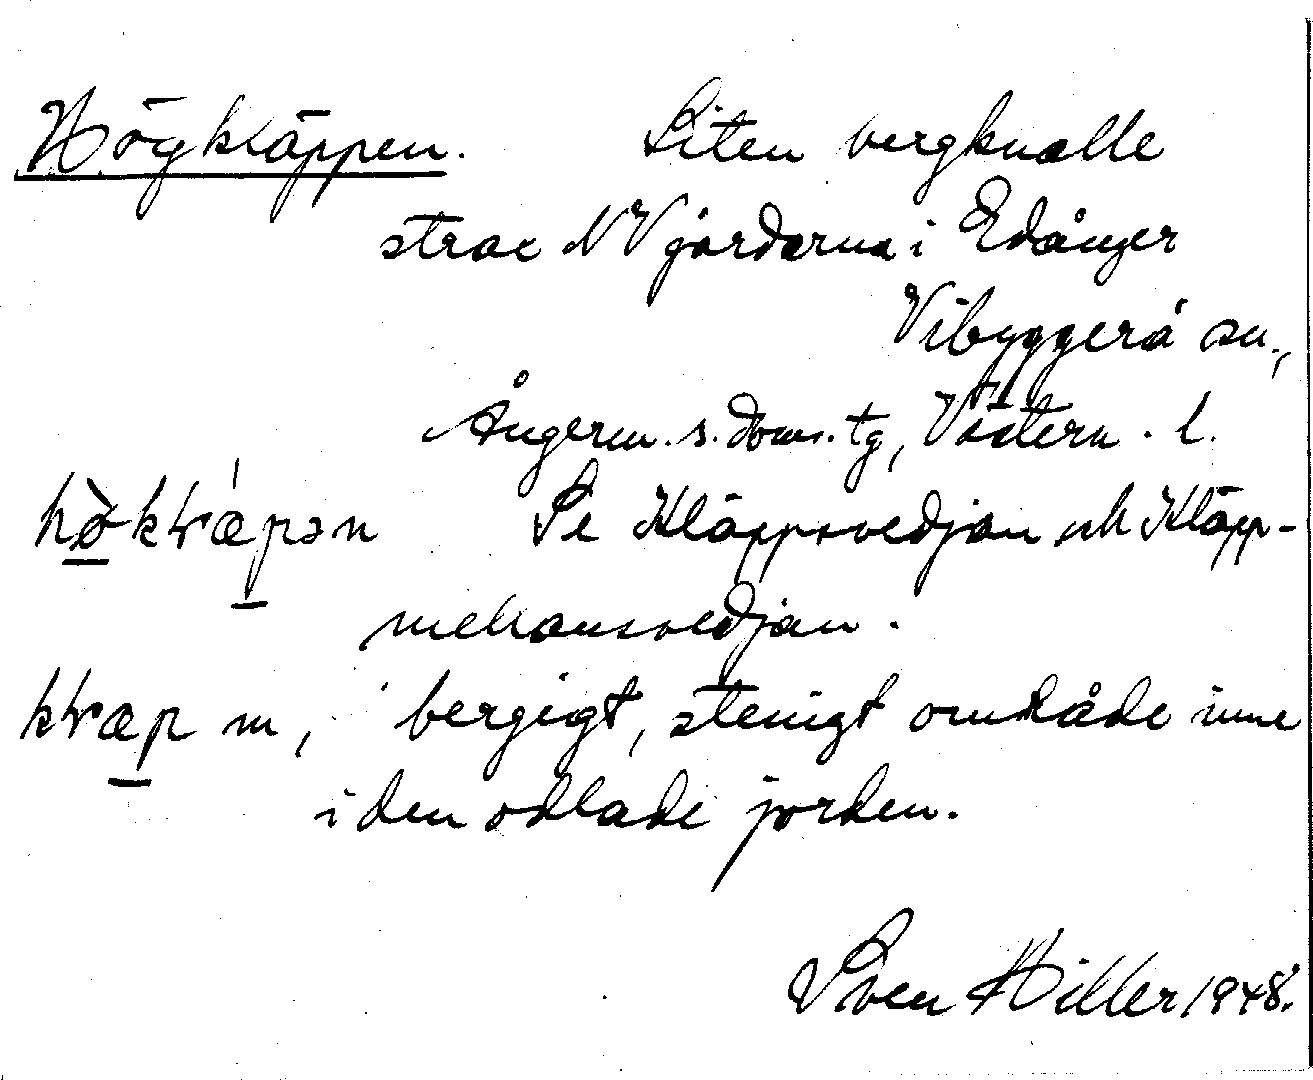 Högkläppen. Liten bergknalle
strax NV gårdarna i Edånger
Vibyggerå sn.,
Ångerm. s. doms. tg, Västern. l.
Se Kläppsvedjan och Kläpp-
mellansvedjan.
m, bergigt, stenigt område inne
i den odlade jorden.
Sven Hiller 1948.